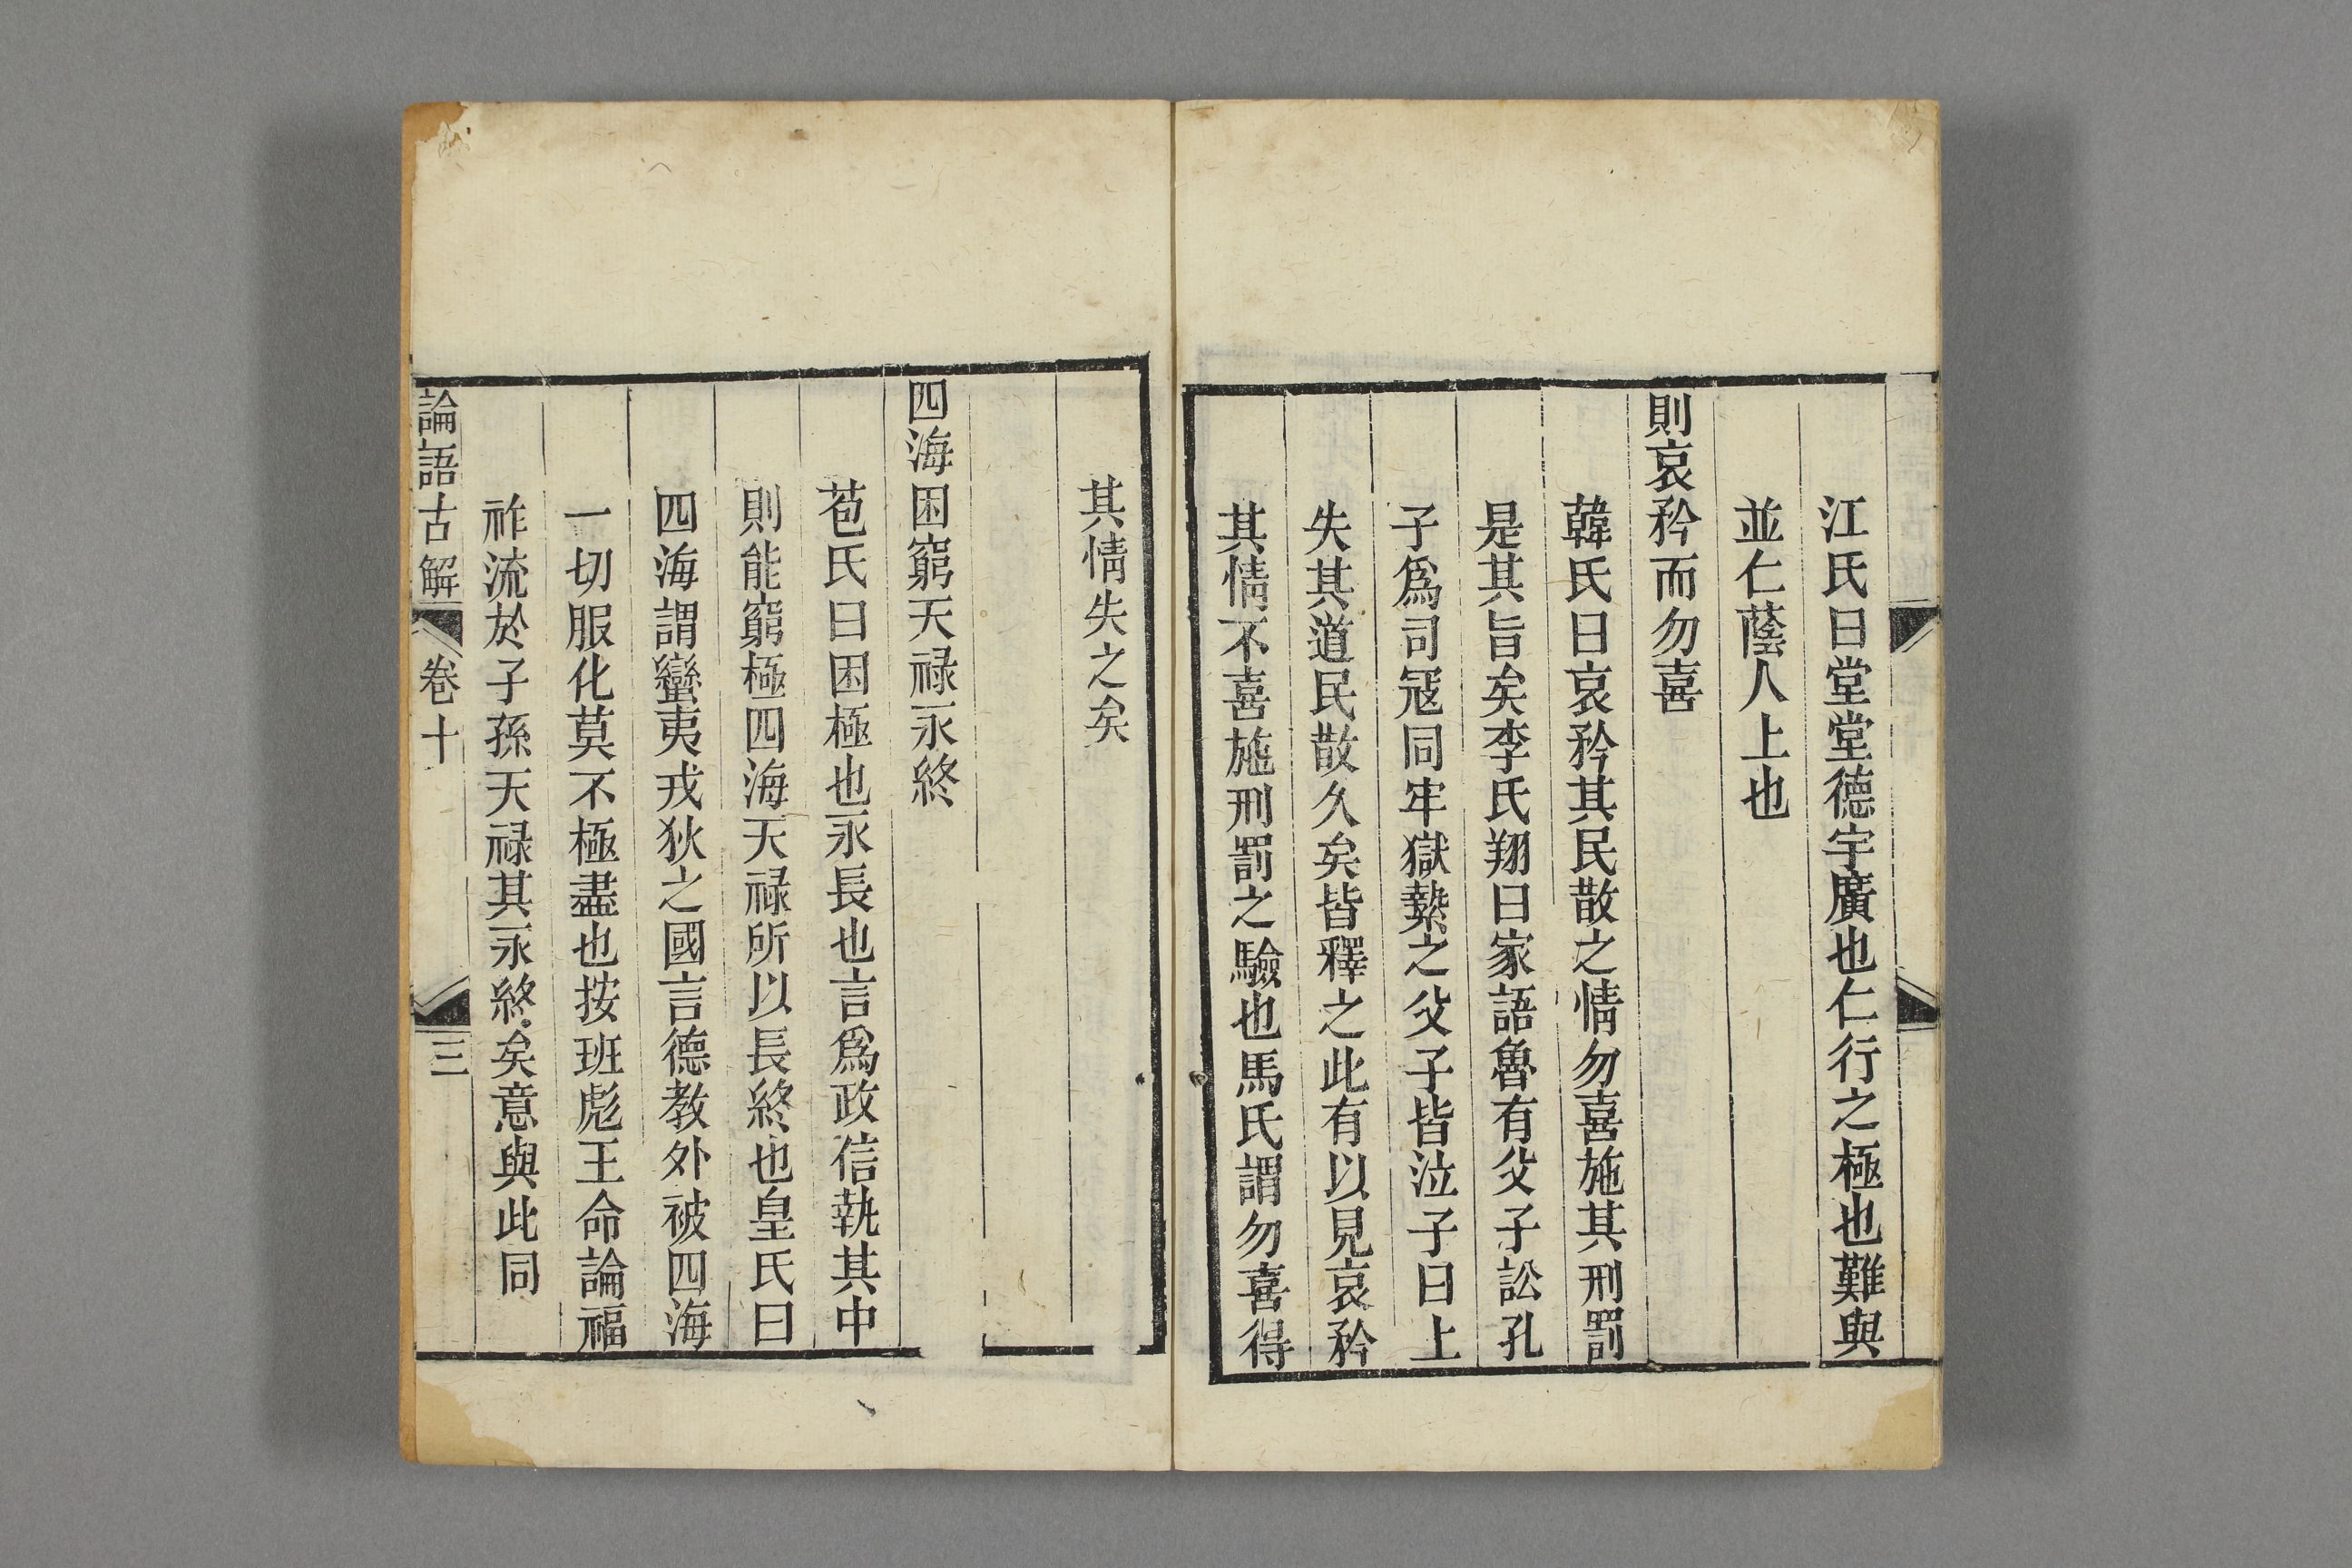 江氏曰堂堂德宇廣也仁行之極也難與
並仁蔭人上也
則哀矜而勿喜
韓氏曰哀矜其民散之情勿喜施其刑罰
是其旨矣李氏翔曰家語魯有父子訟孔
子爲司冦同牢獄縶之父子皆泣子曰上
失其道民散久矣皆釋之此有以見哀矜
其情不喜施刑罰之驗也馬氏謂勿喜得
其情失之矣
四海困窮天禄永終
苞氏曰困極也永長也言爲政信執其中
則能窮極四海天禄所以長終也皇氏曰
四海謂蠻夷戎狄之國言德教外被四海
一切服化莫不極盡也按班彪王命論福
祚流於子孫天禄其永終矣意與此同
論語古解 卷十 三